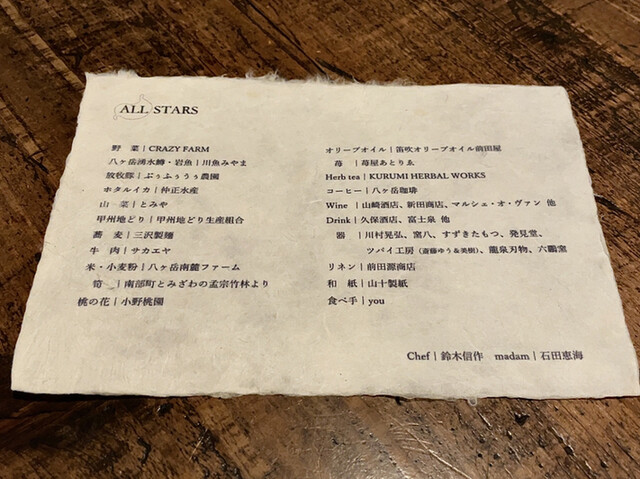 ALL STARS
野　菜 | CRAZY FARM
八ヶ岳湧水鱒・岩魚 | 川魚みやま
放牧豚 | ぶぅふぅうぅ農園
ホタルイカ | 仲正水産
山　菜 | とみや
甲州地どり | 甲州地どり生産組合
蕎　麦 | 三沢製麺
牛　肉 | サカエヤ
米・小麦粉 | 八ヶ岳南麓ファーム
筍 | 南部町とみざわの孟宗竹林より
桃の花 | 小野桃園
オリーブオイル | 笛吹オリーブオイル前田屋
苺 | 苺屋あとりゑ
Herb tea | KURUMI HERBAL WORKS
コーヒー | 八ヶ岳珈琲
Wine | 山崎酒店、新田商店、マルシェ・オ・ヴァン 他
Drink | 久保酒店、富士泉 他
器 | 川村晃弘、窯八、すずきたもつ、発見堂、
ツバイ工房（斎藤ゆう&美樹）、龍泉刃物、六鵬窯
リネン | 前田源商店
和　紙 | 山十製紙
食べ手 | you
Chef | 鈴木信作　madam | 石田恵海